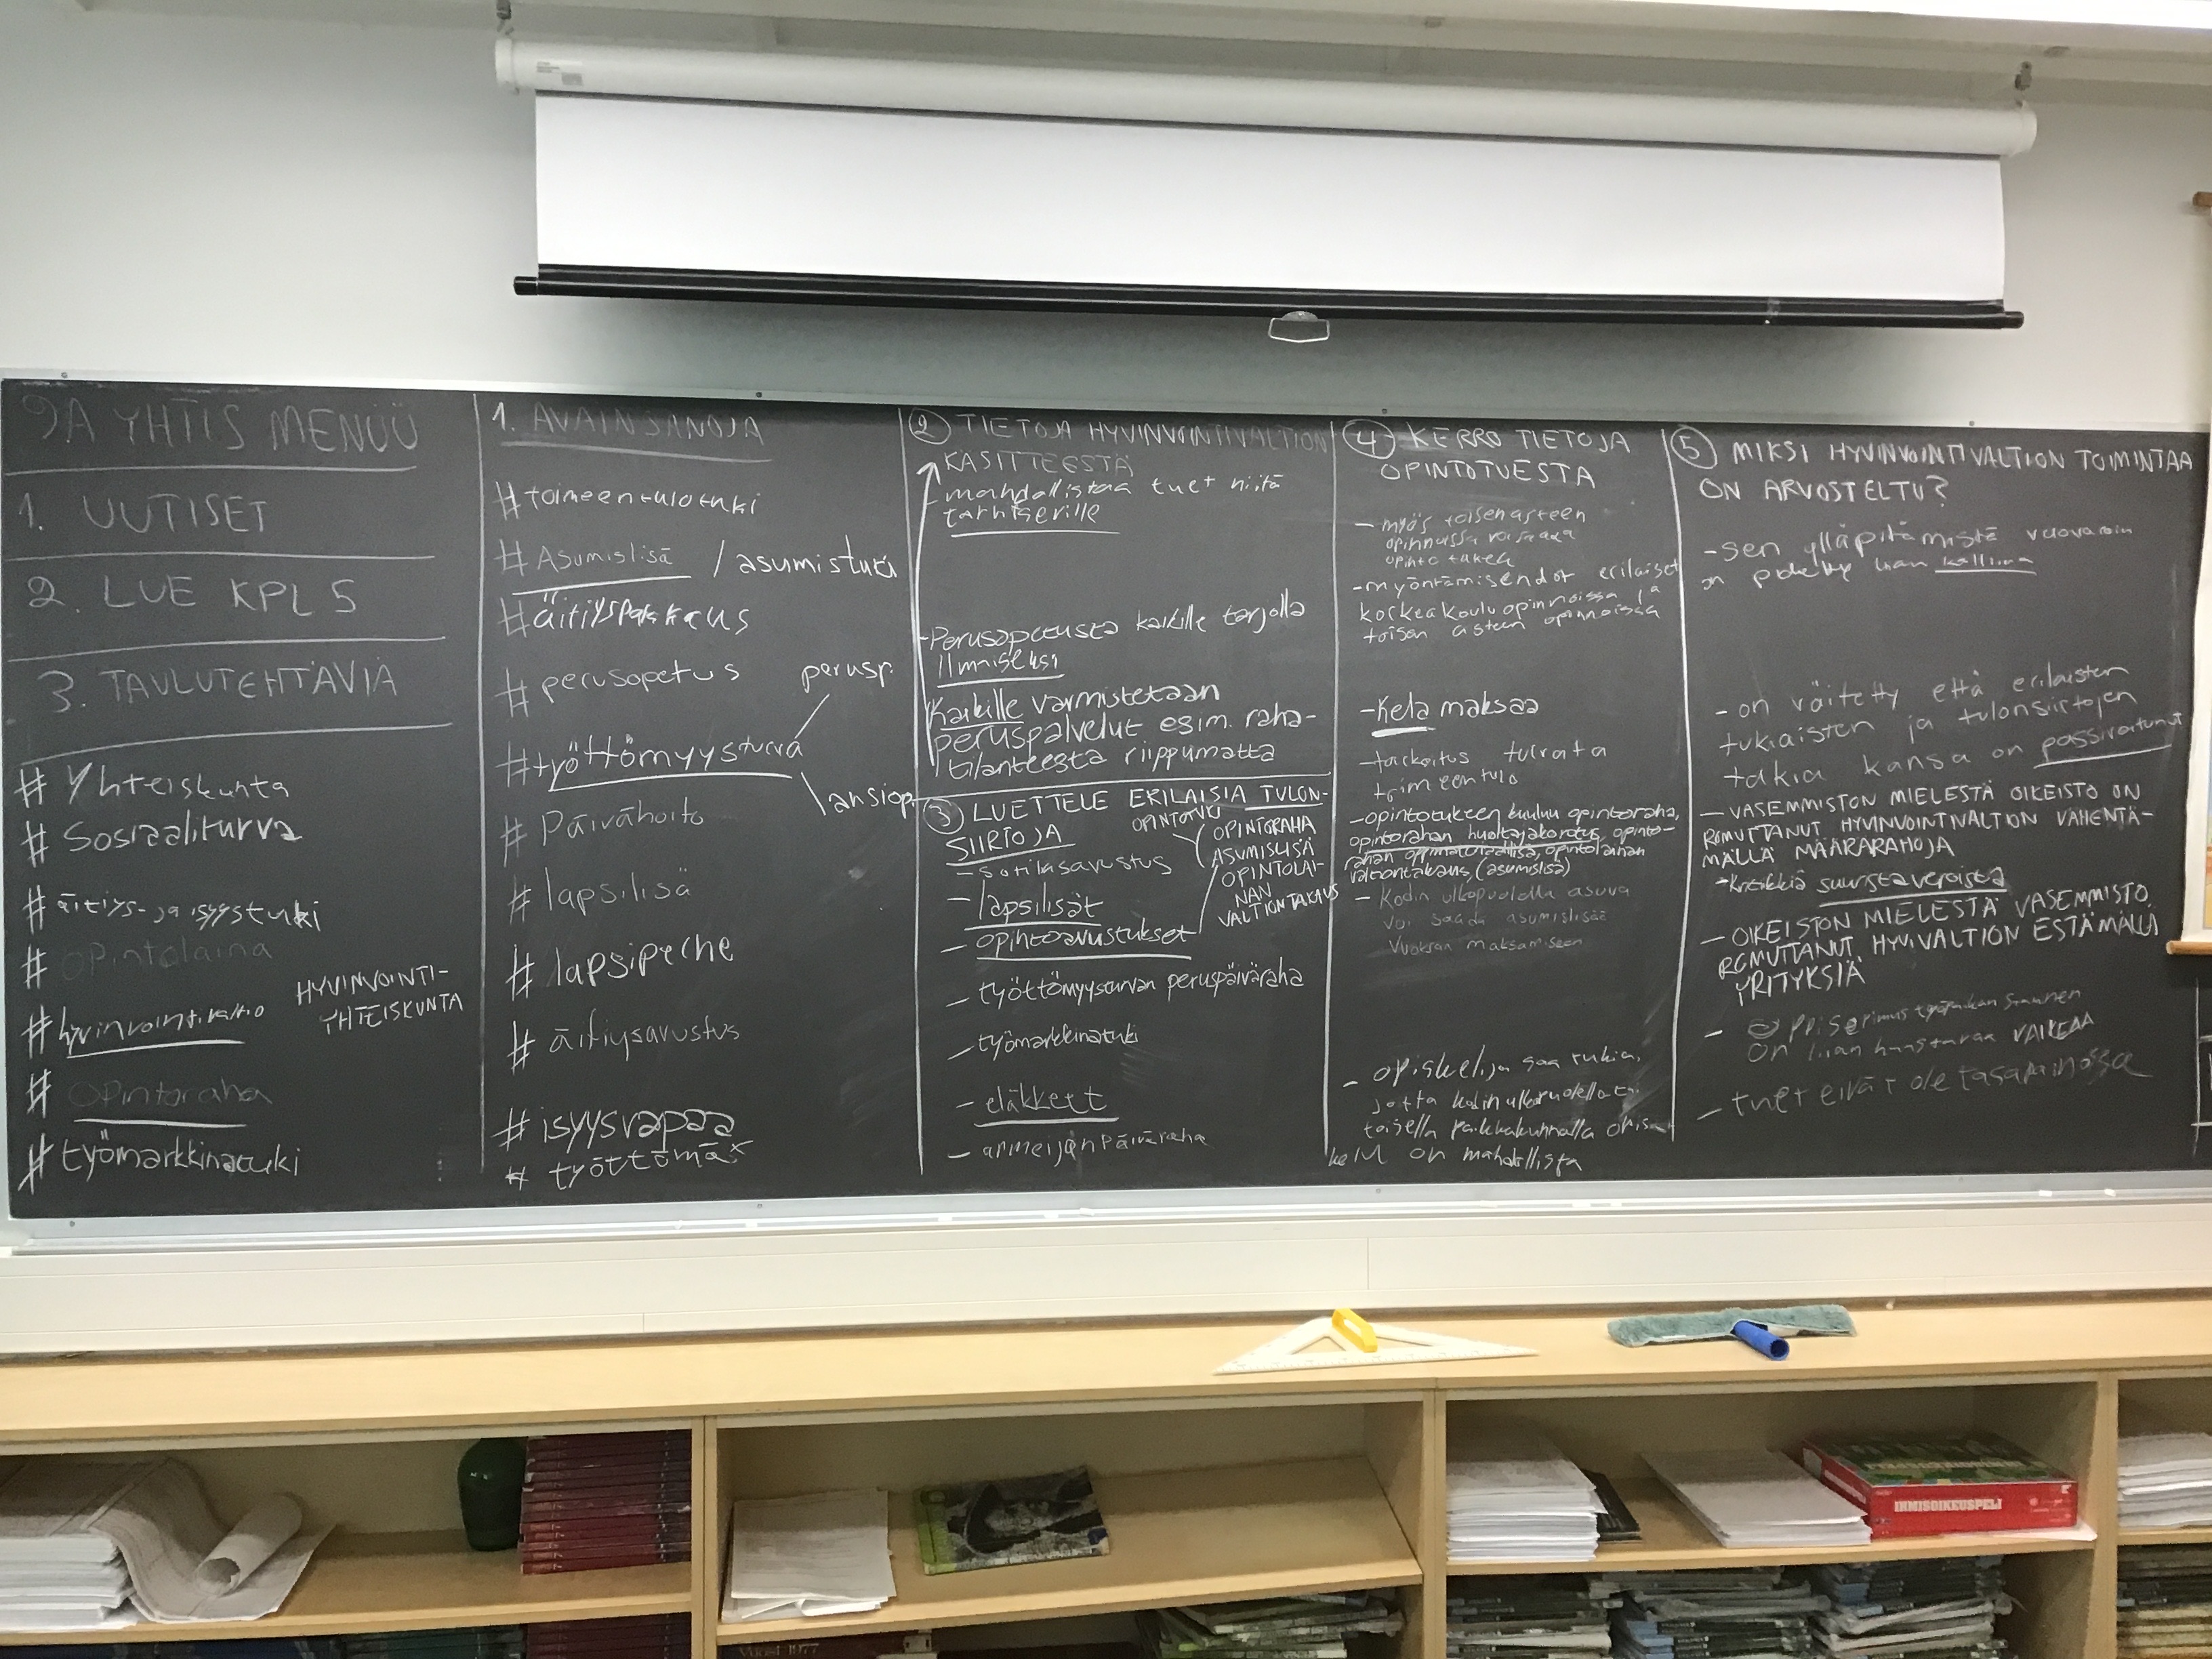 9A YHTIS MENÜÜ
1. UUTISET
2. LUE KPL 5
3. TAULUTEHTÄVIÄ
# Yhteiskunta
# Sosiaaliturva
# äitiys- ja isyystuki
# opintolaina
# hyvinvointivaltio
HYVINVOINTI-
YHTEISKUNTA
# opintoraha
# työmarkkinatuki
1. AVAINSANOJA
# toimeentulotuki
# Asumislisä / asumistuki
# äitiyspakkaus
# perusopetus
perusp.
# työttömyysturva
ansiop.
# Päivähoito
# lapsilisä
# lapsiperhe
# äitiysavustus
# isyysvapaa
# työttömä
2 TIETOJA HYVINVOINTIVALTION
KÄSITTEESTÄ
- mahdollistaa tuet niitä
tarvitseville
- Perusopetusta kaikille tarjolla
Ilmaiseksi
Kaikille varmistetaan
peruspalvelut esim. raha-
tilanteesta riippumatta
3 LUETTELE ERILAISIA TULON-
SIIRTOJA
OPINTOTUKI
OPINTORAHA
ASUMISLISÄ
OPINTOLAI-
NAN
VALTIONTAKAUS
- sotilasavustus
- lapsilisät
- opintoavustukset
- työttömyysturvan peruspäiväraha
- työmarkkinatuki
- eläkkeet
- armeijan päiväraha
4 KERRO TIETOJA
OPINTOTUESTA
- myös toisen asteen
opinnoissa voi saada
opinto
- myöntämisehdot erilaiset
korkeakouluopinnoissa ja
toisen asteen opinnoissa
- Kela maksaa
- tarkoitus turvata
toimeentulo
- opintotukeen kuuluu opintoraha,
opintorahan huoltajakorotus, opinto-
rahan oppimateriaalilisä, opintolainan
valtiontakaus, (asumislisä)
- Kodin ulkopuolella asuva
voi saada asumislisää
vuokran maksamiseen
- opiskelija saa tukia,
jotta kodin ulkopuolella tai
toisella paikkakunnalla opis-
kelu on mahdollista
5 MIKSI HYVINVOINTIVALTION TOIMINTAA
ON ARVOSTELTU?
- sen ylläpitämistä verovaroin
on pidetty liian kalliina
- on väitetty että erilaisten
tukiaisten ja tulonsiirtojen
takia kansa on passivoitunut
- VASEMMISTON MIELESTÄ OIKEISTO ON
ROMUTTANUT HYVINVOINTIVALTION VÄHENTÄ-
MÄLLÄ MÄÄRÄRAHOJA
- Kritiikkiä suurista veroista
- OIKEISTON MIELESTÄ VASEMMISTO
ROMUTTANUT HYV.VALTION ESTÄMÄLLÄ
YRITYKSIÄ
- oppisopimus työpaikan saaminen
on liian VAIKEAA
- tuet eivät ole tasapainossa
IHMISOIKEUSPELI